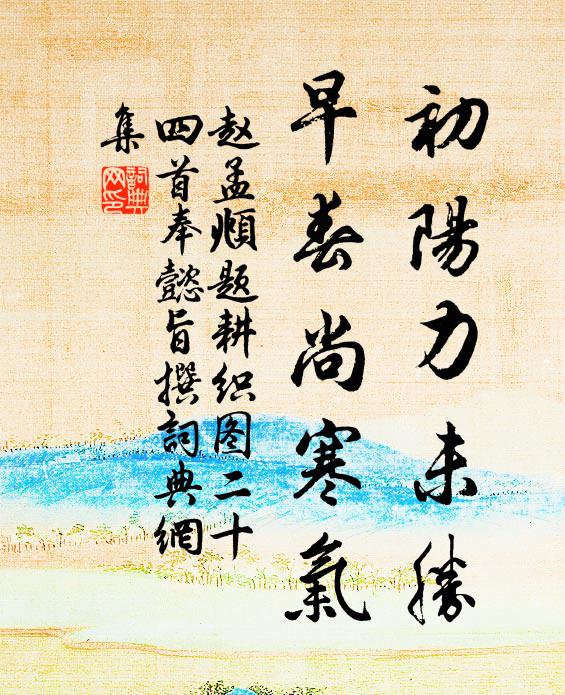 初陽力未勝
早春尚寒氣
赵孟頫题耕织图二十
四首奉懿旨撰詞典網
集
詞典
网印